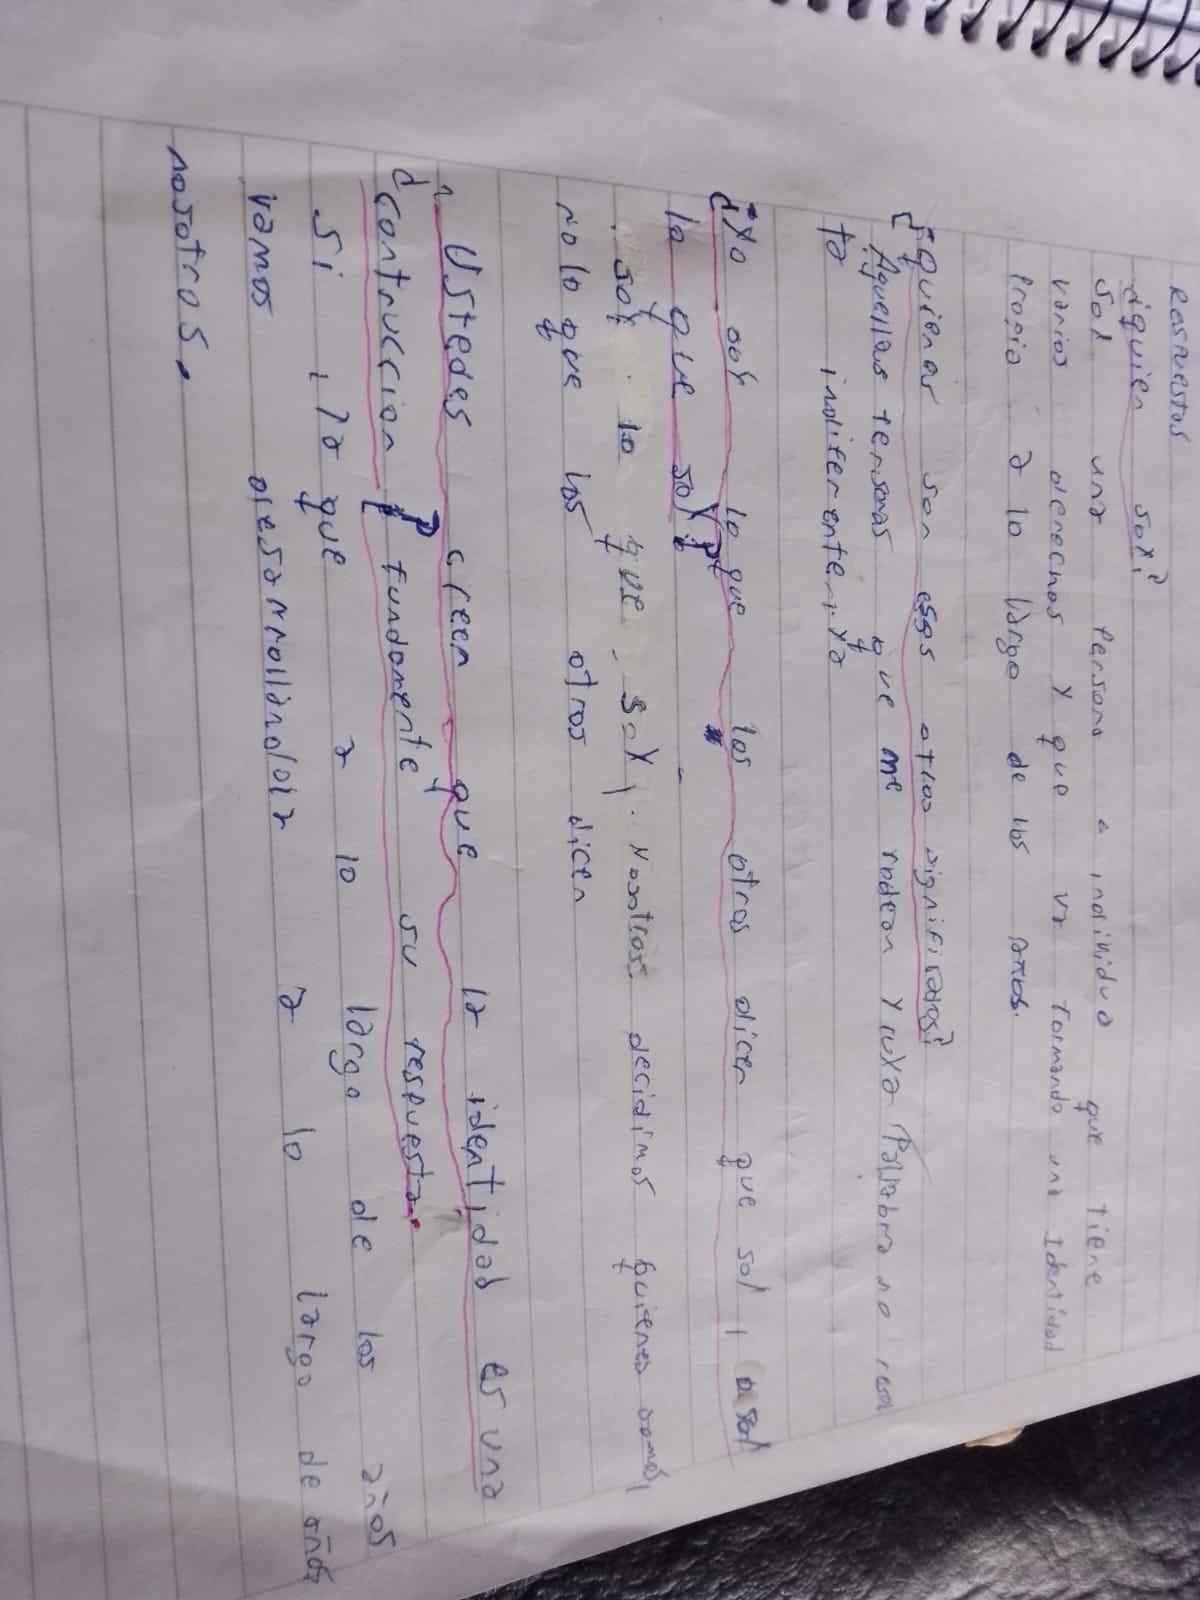 Respuestas
¿quien soy?
Soy una persona o individuo que tiene
varios derechos y que va formando una identidad
propia a lo largo de los años.
¿Quienes son esos otros significados?
Aquellas personas que me rodean y cuya palabra no resul
ta indiferente. ya
¿Yo soy lo que los otros dicen que soy, o soy
lo que soy?
soy lo que soy, Nosotros decidimos quienes somos,
no lo que los otros dicen
¿Ustedes creen que la identidad es una
contruccion? fundamente su respuesta.
Si, la que a lo largo de los años
vamos desarrollandola a lo largo de años
nosotros.